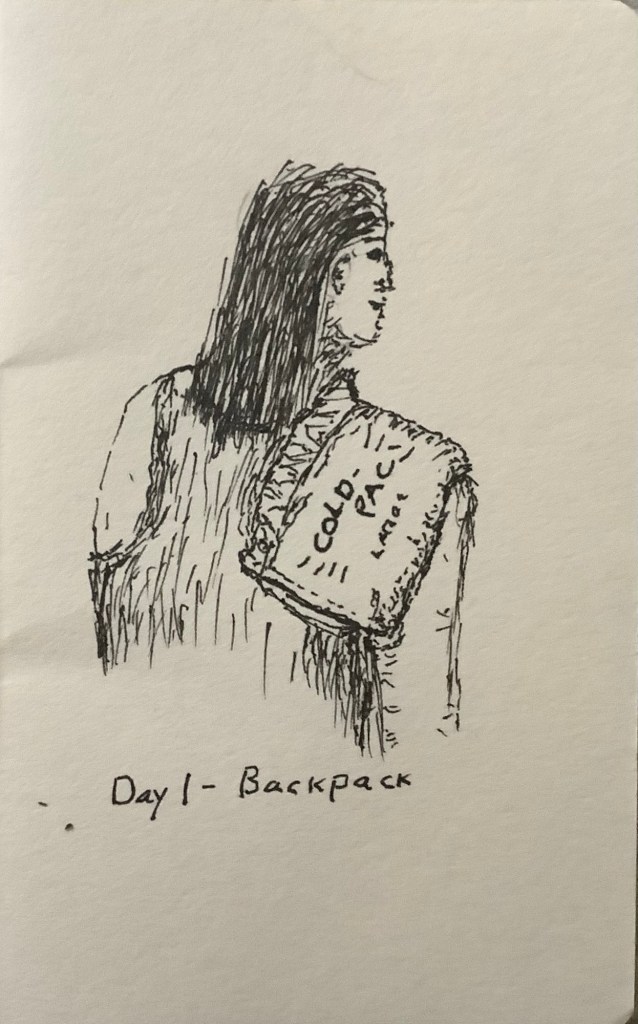 COLD-
PAC
LARGE
Day 1 - Backpack